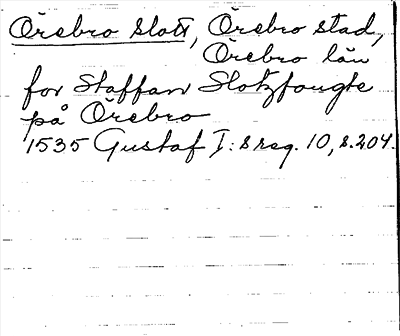 Örebro slott, Örebro stad,
Örebro län
for Staffan Slotzfougte
på Örebro
1535 Gustaf I:s reg. 10, s. 204.